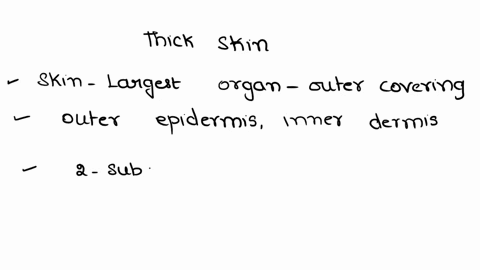 Thick skin
- Skin - Largest organ - outer covering
- outer epidermis, inner dermis
- 2 - sub